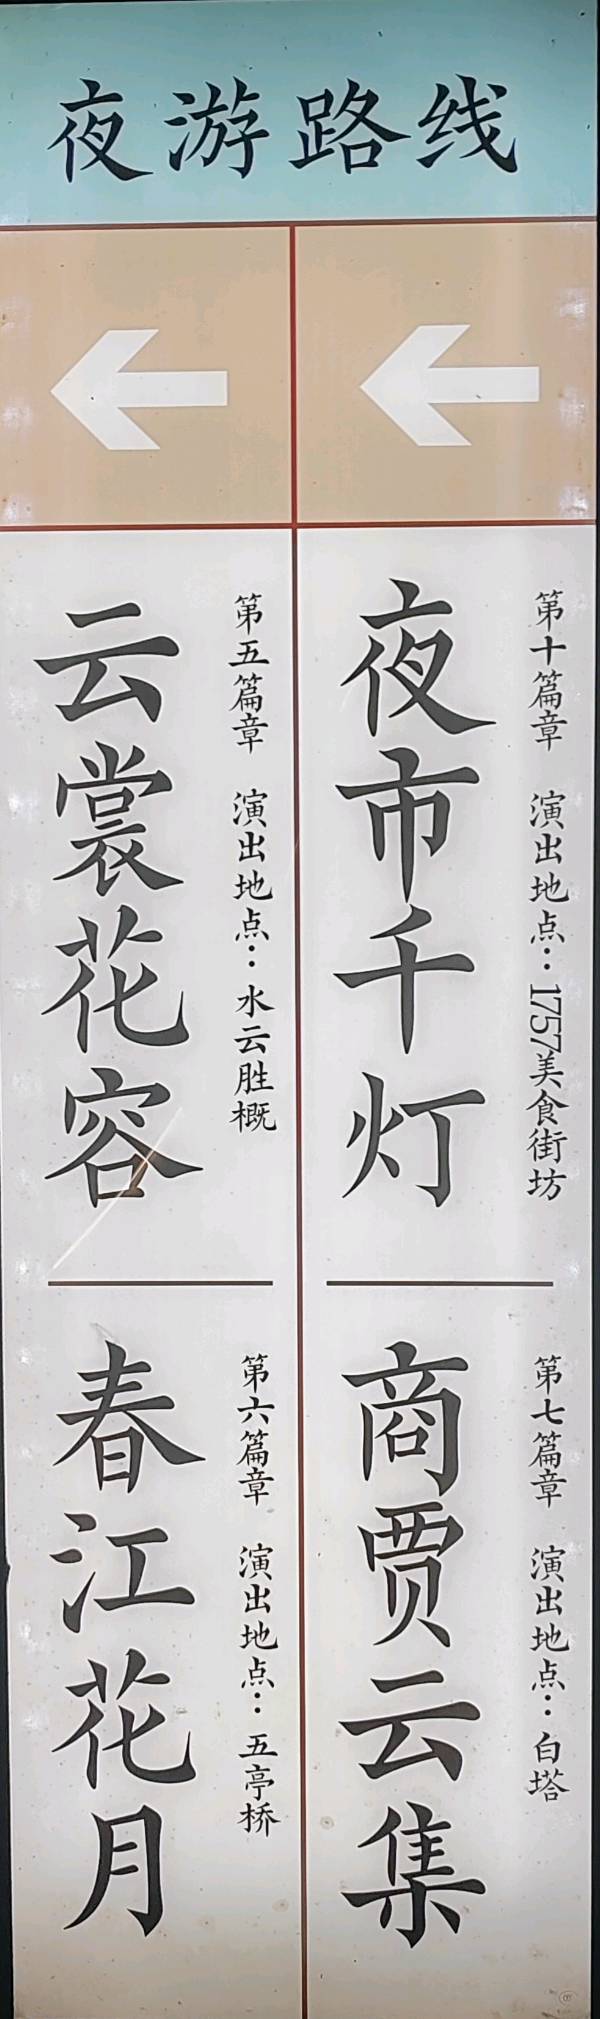 夜游路线
第十篇章 演出地点：1757美食街坊
夜市千灯
第七篇章 演出地点：白塔
商贾云集
第五篇章 演出地点：水云胜概
云裳花容
第六篇章 演出地点：五亭桥
春江花月